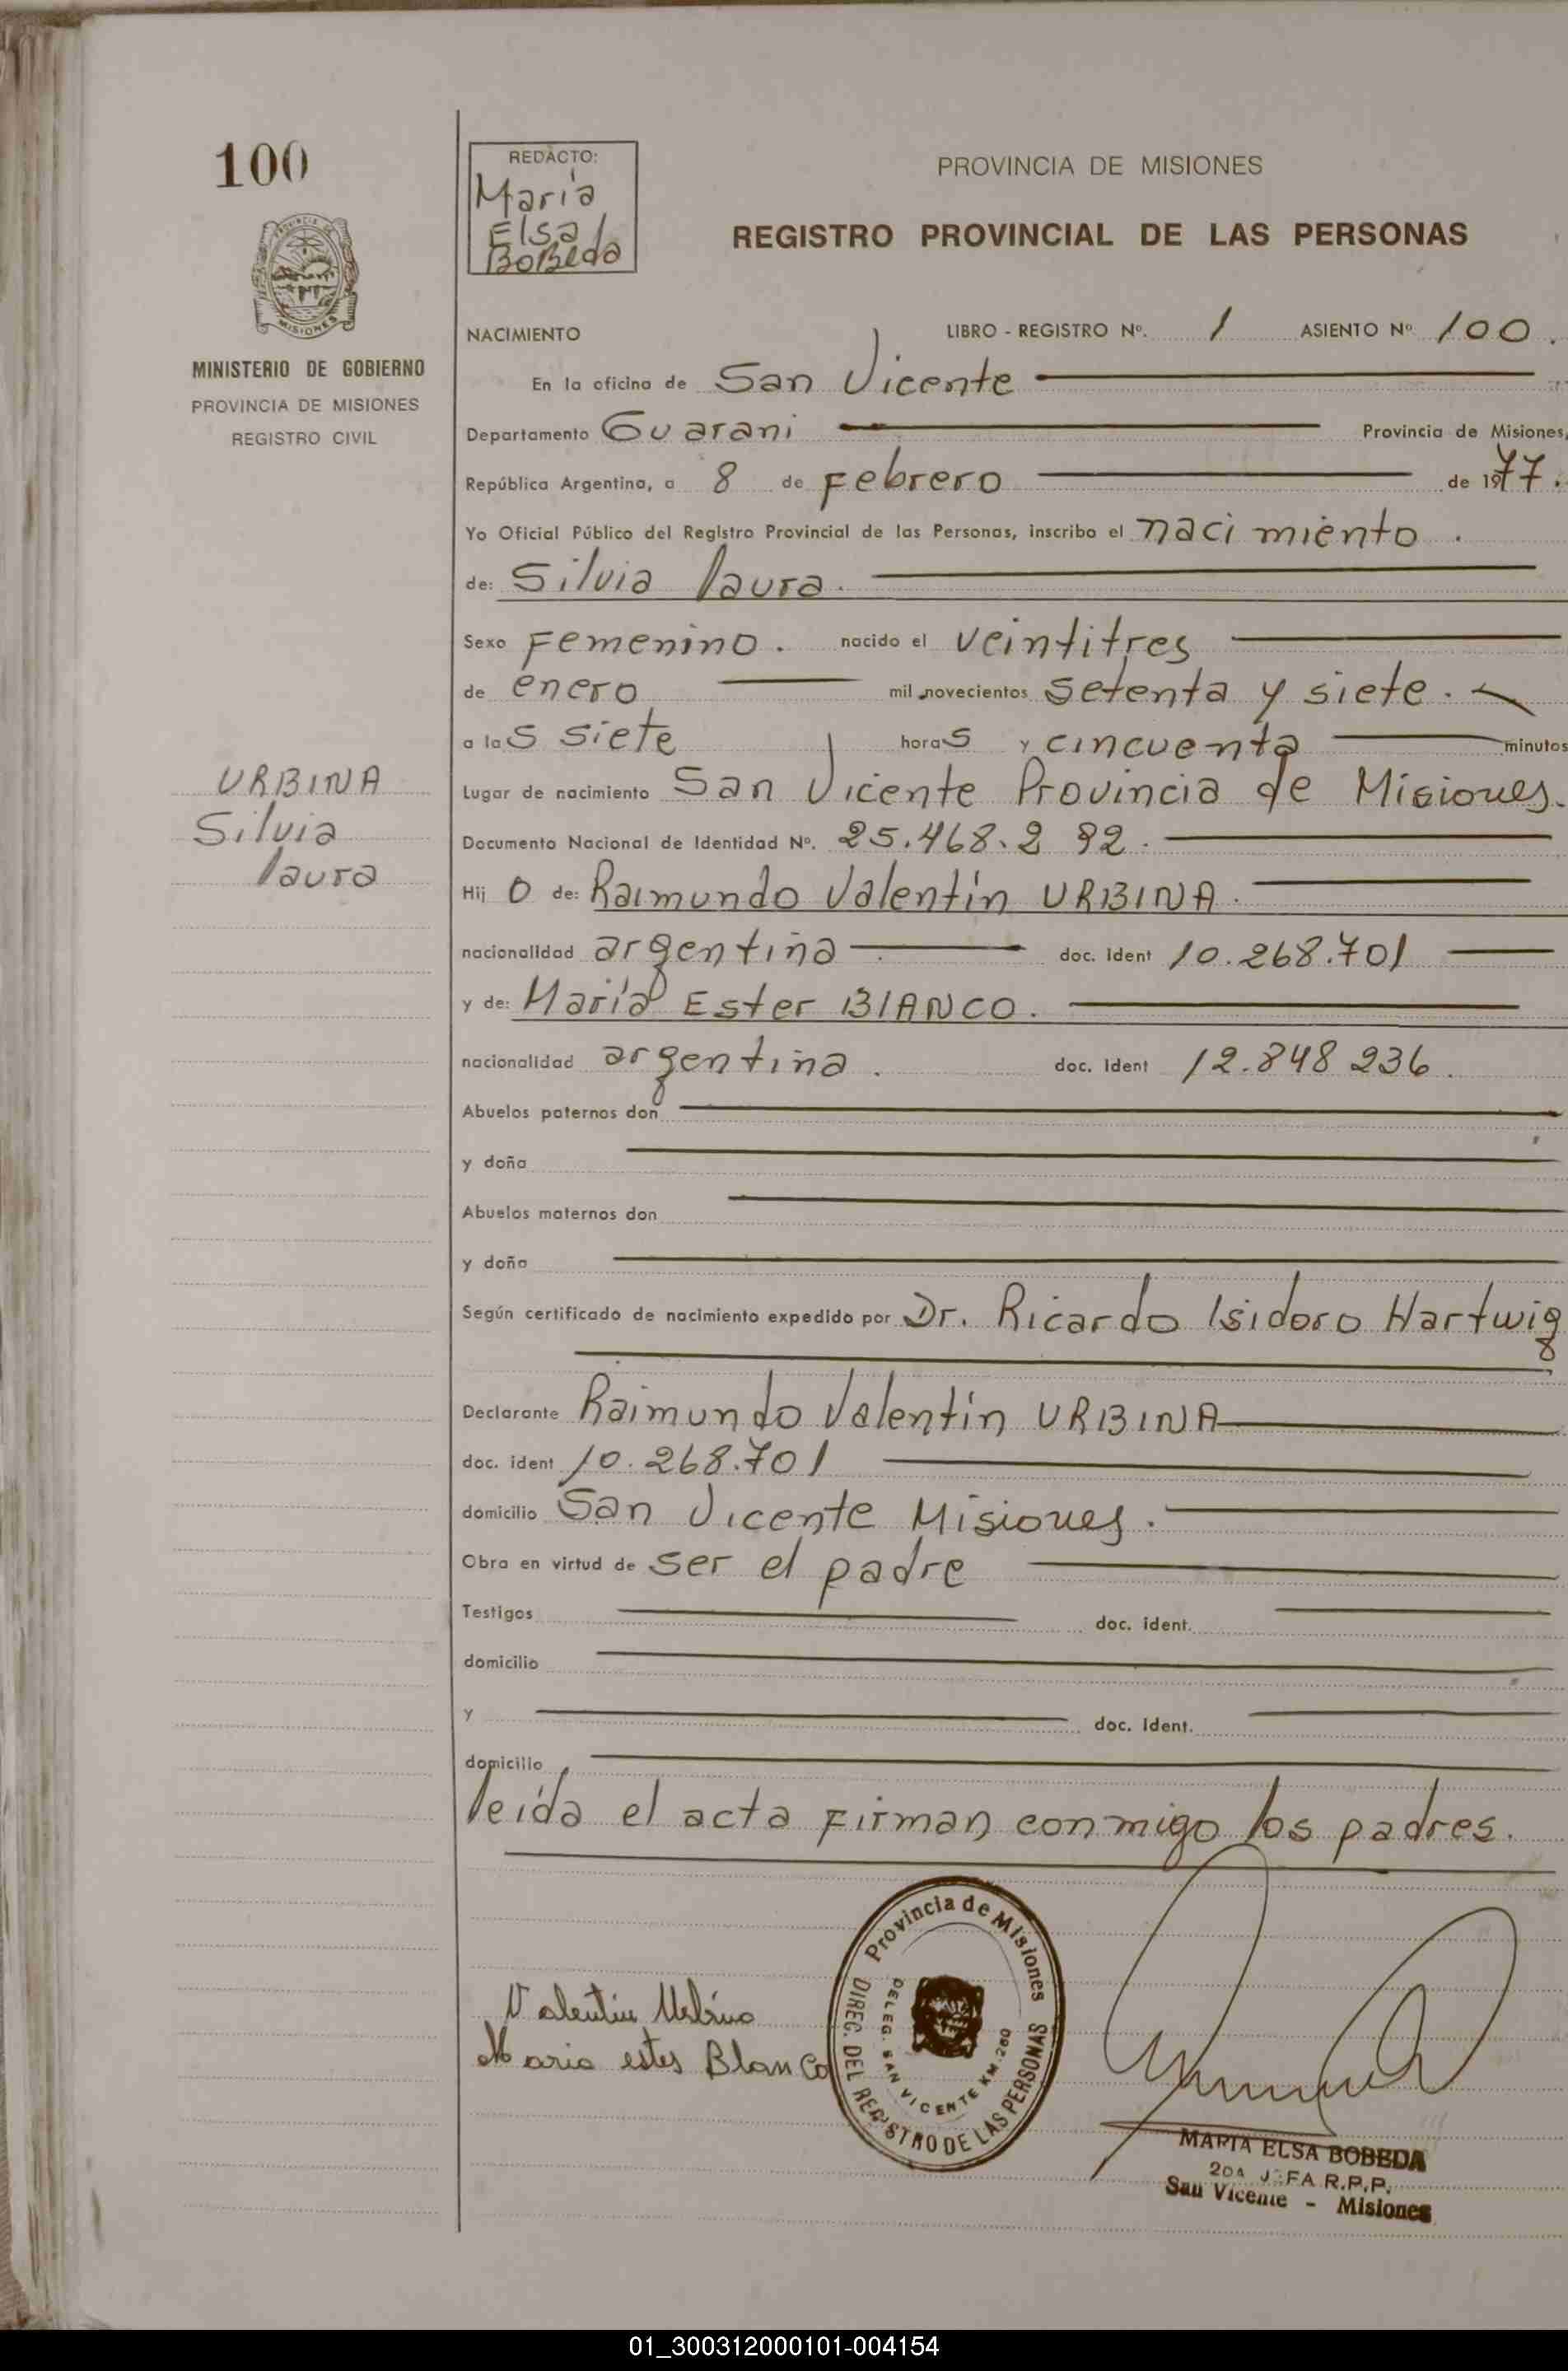 100
REDACTO:
María
Elsa
BoBeda
PROVINCIA DE MISIONES
REGISTRO PROVINCIAL DE LAS PERSONAS
PROVINCIA DE
MISIONES
MINISTERIO DE GOBIERNO
PROVINCIA DE MISIONES
REGISTRO CIVIL
NACIMIENTO LIBRO - REGISTRO Nº. 1 ASIENTO Nº 100.
En la oficina de San Vicente
Departamento Guarani Provincia de Misiones,
República Argentina, a 8 de Febrero de 1977.
Yo Oficial Público del Registro Provincial de las Personas, inscribo el naci miento.
de: Silvia laura.
Sexo Femenino. nacido el veintitres
de enero mil novecientos setenta y siete.
a las siete horas y cincuenta minutos
Lugar de nacimiento San Vicente Provincia de Misiones.
URBINA
Silvia
laura
Documento Nacional de Identidad Nº. 25.468.2 92.
Hij O de: Raimundo Valentín URBINA.
nacionalidad argentina doc. ident 10.268.701
y de: María Ester BIANCO.
nacionalidad argentina. doc. ident 12.848 236.
Abuelos paternos don
y doña
Abuelos maternos don
y doña
Según certificado de nacimiento expedido por Dr. Ricardo Isidoro Hartwig
Declarante Raimundo Valentín URBINA
doc. ident 10.268.701
domicilio San Vicente Misiones.
Obra en virtud de ser el padre
Testigos doc. ident.
domicilio
y doc. ident.
domicilio
leída el acta Firman conmigo los padres.
Valentin Urbina
Maria ester Blanco
Provincia de Misiones
DIREC. DEL REGISTRO DE LAS PERSONAS
DELEG. SAN VICENTE KM. 260
MARIA ELSA BOBEDA
2DA JEFA R.P.P.
San Vicente - Misiones
01_300312000101-004154